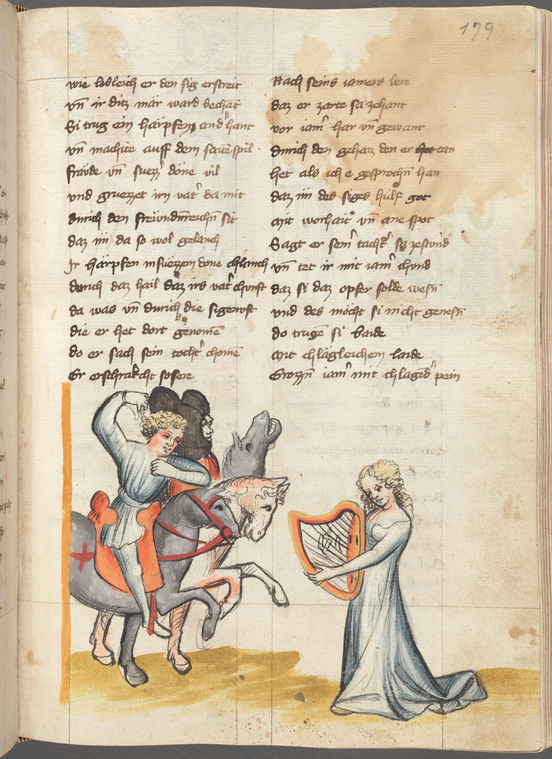 179
wie lobleich er den sig erstreit
vn̄ ir ditz mär ward bechāt
Si trug ein härpfen an dʼ hant
vn̄ machte auff dem saitē spil
fräude vn̄ suezz döne vil
und gruezzet irn vatʼ da mit
durich den freundureichn̄ sit
daz im da so wol gelanch
Ir härpfen in suezzem done chlanch
durich daz hail daz irs vatʼ chunft
da was vn̄ durich die signuft
die er het dort genomē
do er sach sein tochtʼ chomē
Er erschrakcht so sere
Nach seins iamers lere
daz er zarte sa zehant
vor iamʼ har vn̄ gewant
durich den gehaiz den er tan
het als ich e gesprochn̄ han
daz im des siges hülf got
mit worhait vn̄ ane spot
Sagt er seinʼ tachtʼ sa zestund
vn̄ tet ir mit iamʼ chund
daz si daz opfer solde wesn̄
und des möcht si nicht genesn̄
do trugē si baide
mit chlagleichem laide
Grozzn̄ iamʼ mit chlagedʼ pein